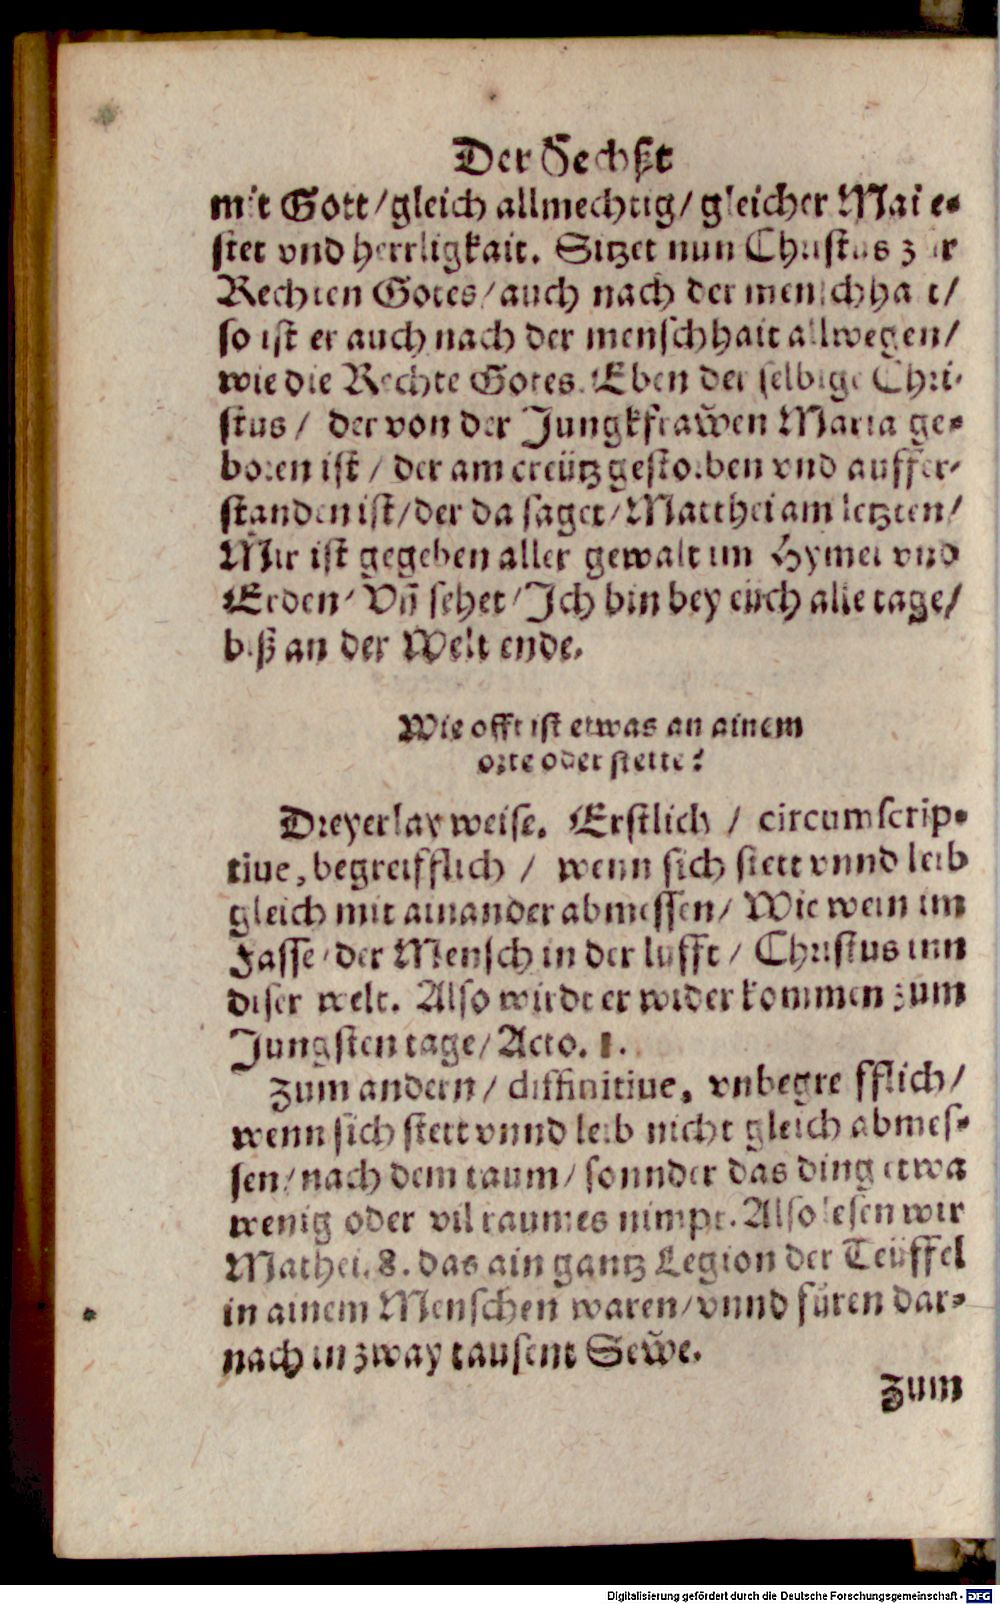 Der Sechßt
mit Gott/gleich allmechtig/gleicher Maie-
stet vnd herrligkait. Sitzet nun Christus zur
Rechten Gotes/auch nach der menschhait/
so ist er auch nach der menschhait allwegen/
wie die Rechte Gotes. Eben der selbige Chri-
stus/ der von der Jungkfraw̃en Maria ge-
boren ist/ der am creütz gestorben vnd auffer-
standen ist/der da saget/Matthei am letzten/
Mir ist gegeben aller gewalt im Hymel vnd
Erden/Vñ sehet/Ich bin bey eüch alle tage/
biß an der Welt ende.
Wie offt ist etwas an ainem
orte oder stette?
Dreyerlay weise. Erstlich/ circumscrip-
tiue, begreifflich/ wenn sich stett vnnd leib
gleich mit ainander abmessen/ Wie wein im
Fasse/der Mensch in der lufft/ Christus inn
diser welt. Also wirdt er wider kommen zum
Jungsten tage/Acto. 1.
Zum andern/ diffinitiue, vnbegreifflich/
wenn sich stett vnnd leib nicht gleich abmes-
sen/nach dem raum/sonnder das ding etwa
wenig oder vil raumes nimpt. Also lesen wir
Mathei. 8. das ain gantz Legion der Teüffel
in ainem Menschen waren/vnnd füren dar-
nach in zway tausent Sew̃e.
Zum
Digitalisierung gefördert durch die Deutsche Forschungsgemeinschaft - DFG